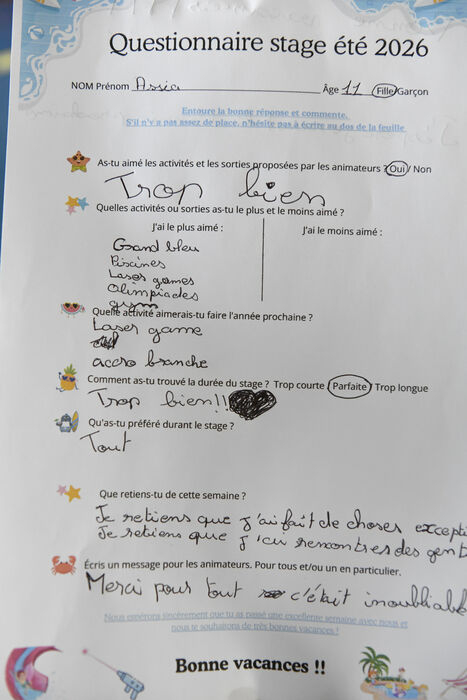 Questionnaire stage été 2026
NOM Prénom Assia Âge 11 Fille/Garçon
Entoure la bonne réponse et commente.
S'il n'y a pas assez de place, n'hésite pas à écrire au dos de la feuille
As-tu aimé les activités et les sorties proposées par les animateurs ? Oui / Non
Trop bien
Quelles activités ou sorties as-tu le plus et le moins aimé ?
J'ai le plus aimé : J'ai le moins aimé :
Grand bleu
Piscines
Laser games
Olimpiades
gym
Quelle activité aimerais-tu faire l'année prochaine ?
Laser game
accro branche
Comment as-tu trouvé la durée du stage ? Trop courte / Parfaite / Trop longue
Trop bien!!
Qu'as-tu préféré durant le stage ?
Tout
Que retiens-tu de cette semaine ?
Je retiens que j'ai fait de choses excepti
Je retiens que j'ai rencontres des gent
Écris un message pour les animateurs. Pour tous et/ou un en particulier.
Merci pour tout c'était inoubliabl
Nous espérons sincèrement que tu as passé une excellente semaine avec nous et
nous te souhaitons de très bonnes vacances !
Bonne vacances !!